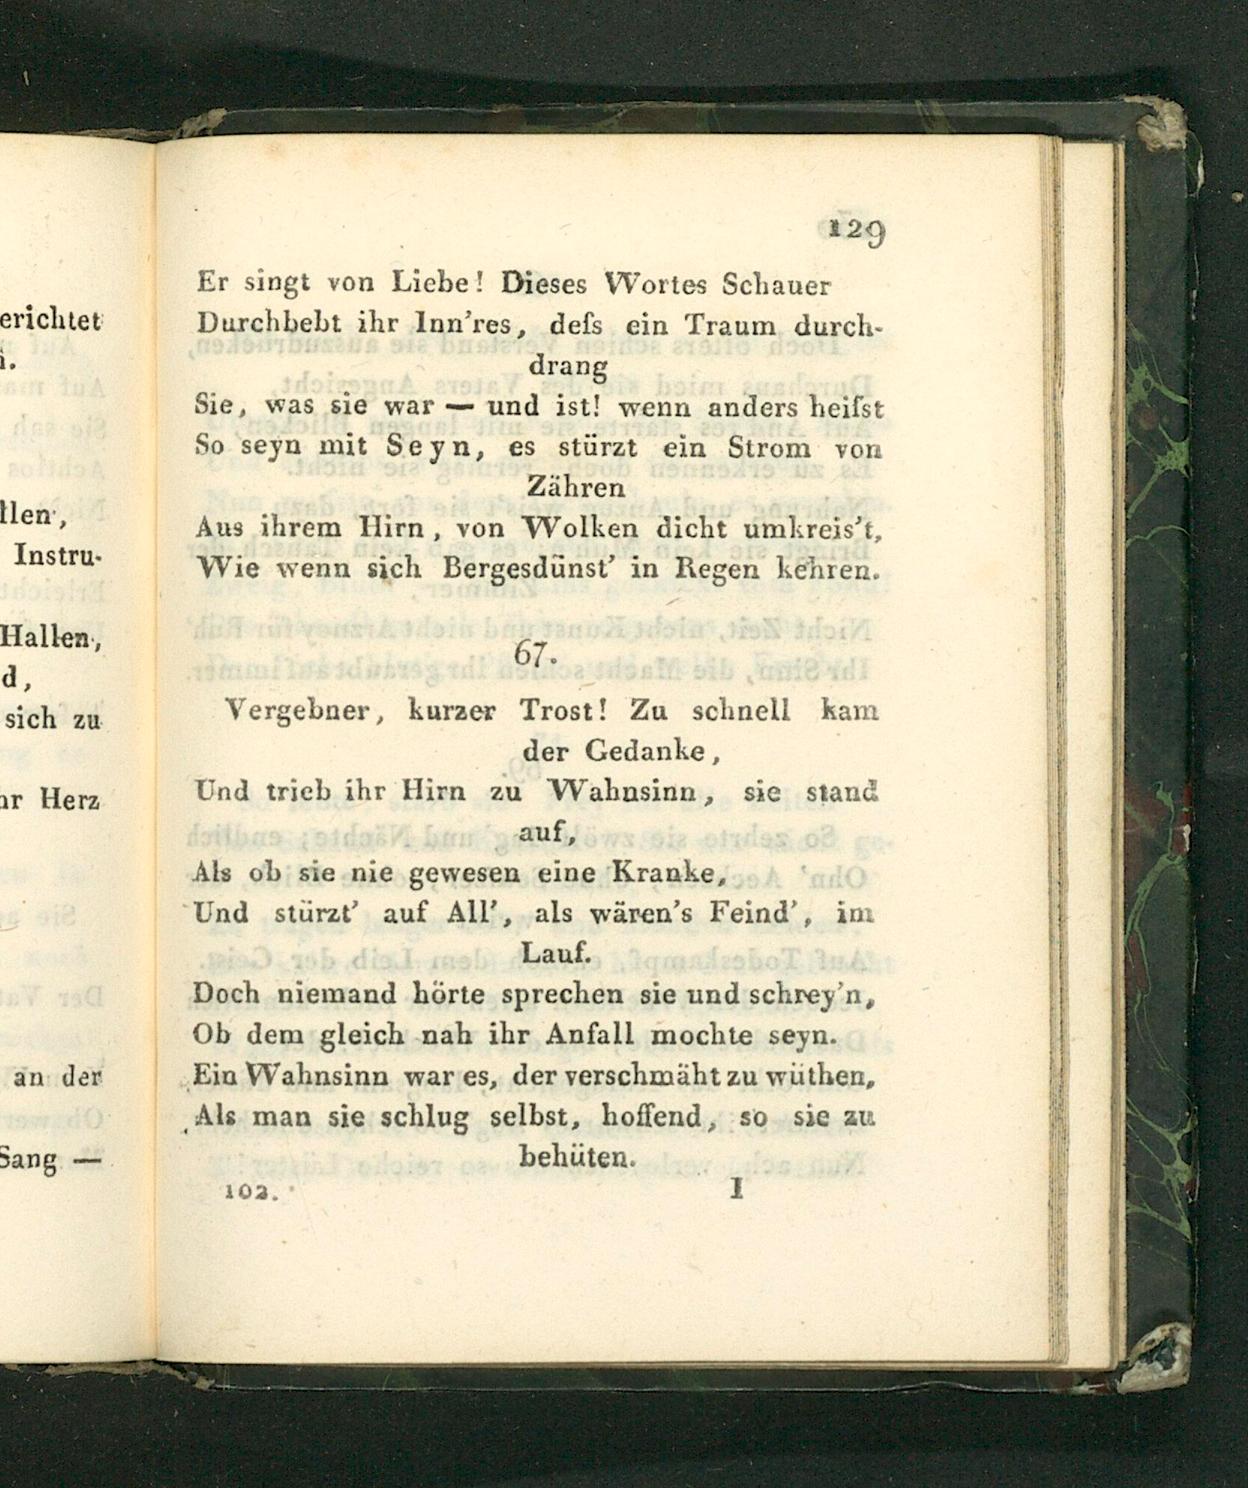 erichtet
llen,
Instru-
Hallen,
d,
sich zu
hr Herz
an der
Sang —
129
Er singt von Liebe! Dieses Wortes Schauer
Durchbebt ihr Inn'res, deſs ein Traum durch-
drang
Sie, was sie war — und ist! wenn anders heiſst
So seyn mit Seyn, es stürzt ein Strom von
Zähren
Aus ihrem Hirn, von Wolken dicht umkreis't,
Wie wenn sich Bergesdünst' in Regen kehren.
67.
Vergebner, kurzer Trost! Zu schnell kam
der Gedanke,
Und trieb ihr Hirn zu Wahnsinn, sie stand
auf,
Als ob sie nie gewesen eine Kranke,
Und stürzt' auf All', als wären's Feind', im
Lauf.
Doch niemand hörte sprechen sie und schrey'n,
Ob dem gleich nah ihr Anfall mochte seyn.
Ein Wahnsinn war es, der verschmäht zu wüthen,
Als man sie schlug selbst, hoffend, so sie zu
behüten.
102. I